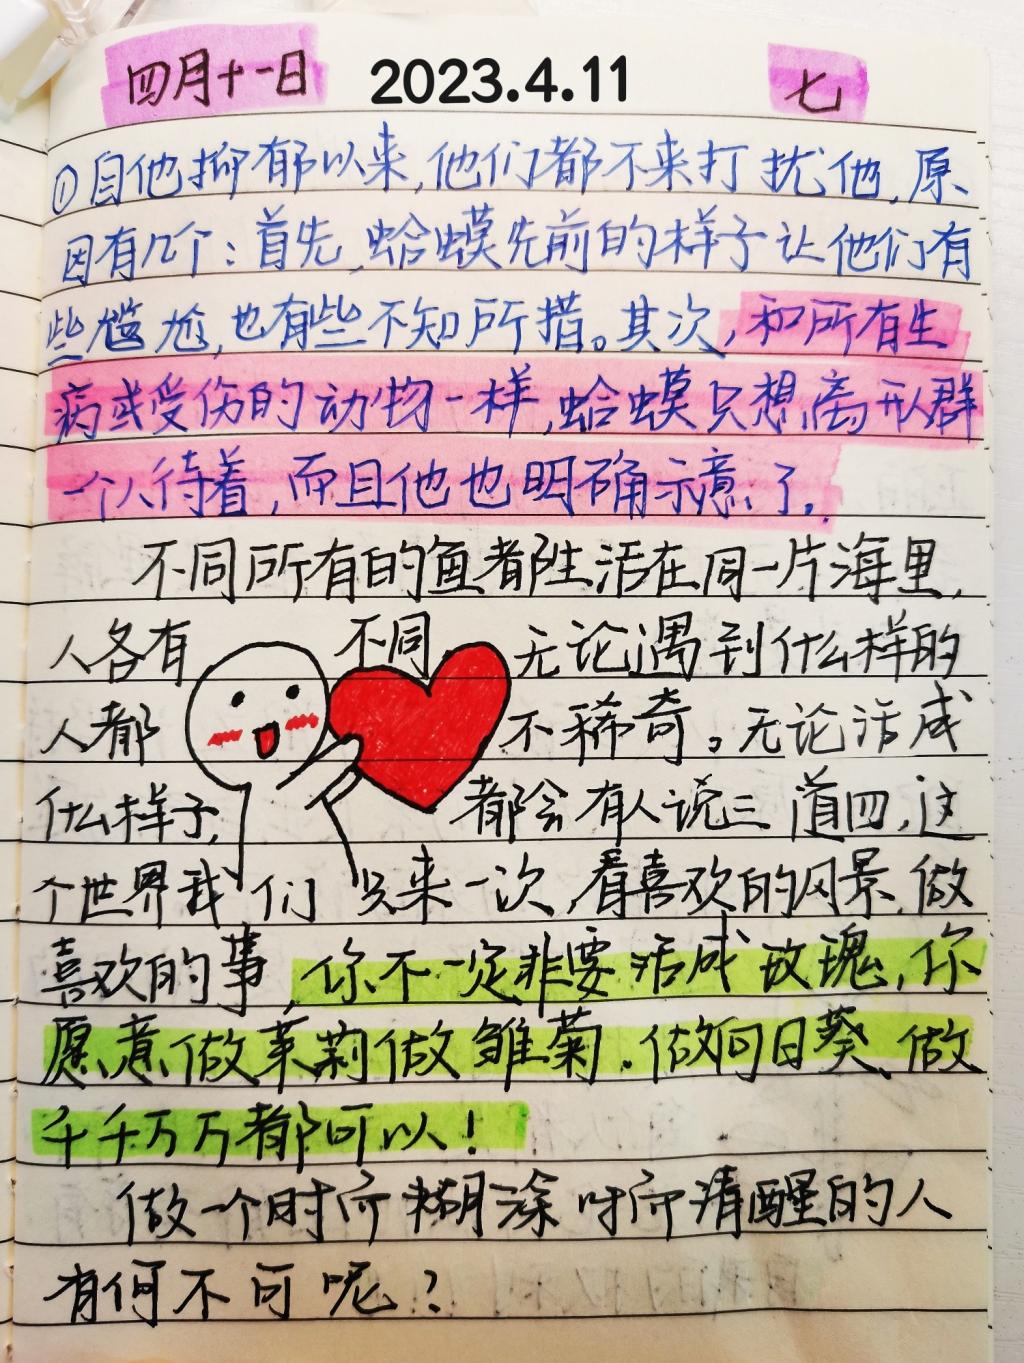 四月十一日 2023.4.11 七
①自他抑郁以来,他们都不来打扰他,原
因有几个:首先,蛤蟆先前的样子让他们有
些尴尬,也有些不知所措。其次,和所有生
病或受伤的动物一样,蛤蟆只想离开群
一个人待着,而且他也明确示意了.
不同所有的鱼都生活在同一片海里,
人各有不同 无论遇到什么样的
人都不稀奇。无论活成
什么样子,都会有人说三道四,这
个世界我们只来一次,看喜欢的风景,做
喜欢的事,你不一定非要活成玫瑰,你
愿意做茉莉做雏菊.做向日葵、做
千千万万都可以!
做一个时而糊涂时而清醒的人
有何不可呢?